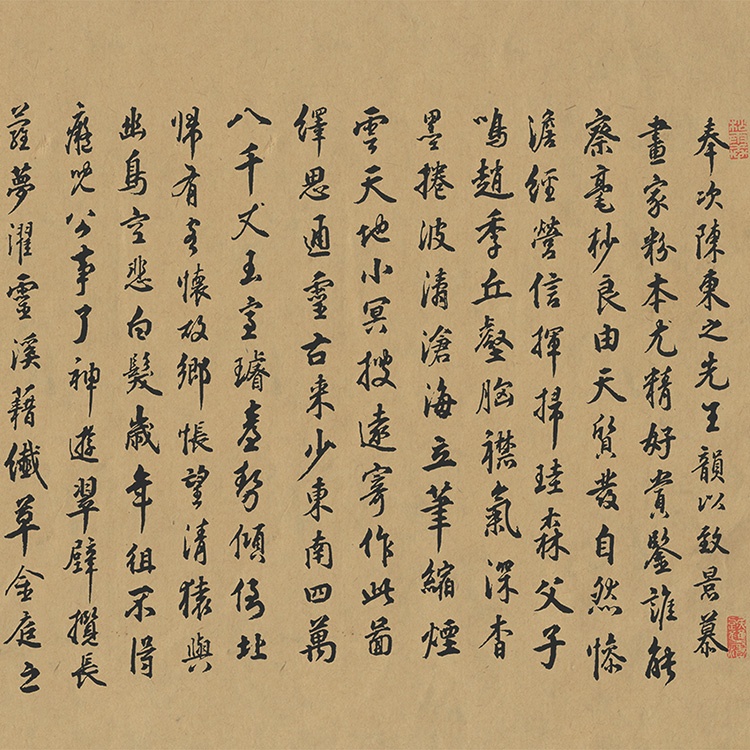 奉次陳東之先生韻以致景慕
畫家粉本尤精好賞鑒誰能
察毫杪良由天質發自然慘
澹經營信揮掃珪森父子
鳴趙季丘壑胸襟氣深杳
墨捲波濤滄海立筆縮煙
雲天地小冥搜遠寄作此圖
繹思通靈古來少東南四萬
八千丈玉室璿臺勢傾倚
歸有客懷故鄉悵望清猿與
幽鳥空悲白髮歲年徂不得
癡兒公事了神遊翠壁攬長
蘿夢濯靈溪藉纖草金庭之